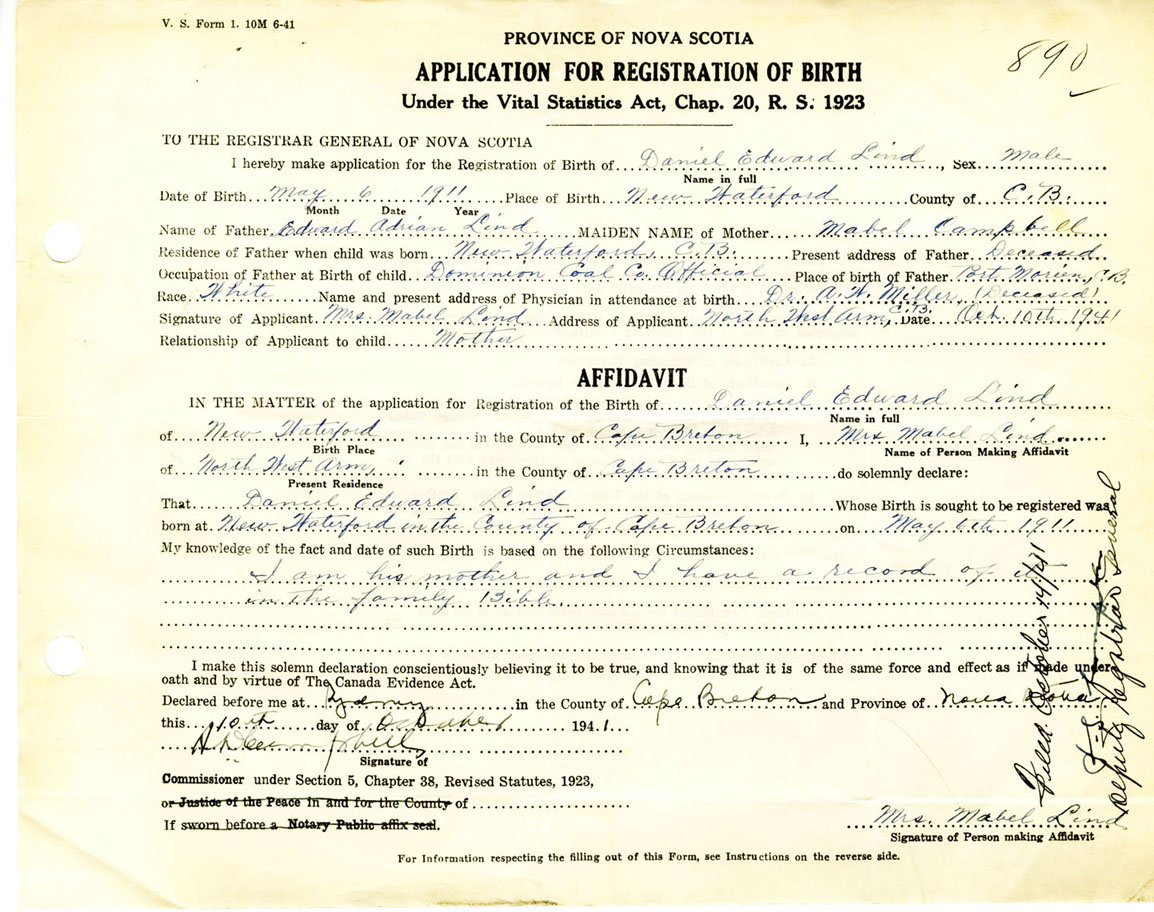 V. S. Form 1. 10M 6-41
PROVINCE OF NOVA SCOTIA
890
APPLICATION FOR REGISTRATION OF BIRTH
Under the Vital Statistics Act, Chap. 20, R. S. 1923
TO THE REGISTRAR GENERAL OF NOVA SCOTIA
I hereby make application for the Registration of Birth of Daniel Edward Lind, Sex Male
Name in full
Date of Birth May 6 1911 Place of Birth New Waterford County of C.B.
Month Date Year
Name of Father Edward Adrian Lind MAIDEN NAME of Mother Mabel Campbell
Residence of Father when child was born New Waterford, C.B. Present address of Father Deceased
Occupation of Father at Birth of child Dominion Coal Co. Official Place of birth of Father Port Morien, C.B.
Race White Name and present address of Physician in attendance at birth Dr. A. N. Miller (Deceased)
Signature of Applicant Mrs. Mabel Lind Address of Applicant North West Arm, C.B. Date Oct. 10th 1941
Relationship of Applicant to child Mother
AFFIDAVIT
IN THE MATTER of the application for Registration of the Birth of Daniel Edward Lind
Name in full
of New Waterford in the County of Cape Breton I, Mrs Mabel Lind
Birth Place Name of Person Making Affidavit
of North West Arm, in the County of Cape Breton do solemnly declare:
Present Residence
That Daniel Edward Lind Whose Birth is sought to be registered was
born at New Waterford in the County of Cape Breton on May 6th 1911
My knowledge of the fact and date of such Birth is based on the following Circumstances:
I am his mother and I have a record of it
in the family Bible
I make this solemn declaration conscientiously believing it to be true, and knowing that it is of the same force and effect as if made under
oath and by virtue of The Canada Evidence Act.
Declared before me at Sydney in the County of Cape Breton and Province of Nova Scotia
this 10th day of October 1941
Signature of
Commissioner under Section 5, Chapter 38, Revised Statutes, 1923,
or Justice of the Peace in and for the County of
If sworn before a Notary Public affix seal.
Mrs. Mabel Lind
Signature of Person making Affidavit
For Information respecting the filling out of this Form, see Instructions on the reverse side.
Filed October 14/41
Deputy Registrar General